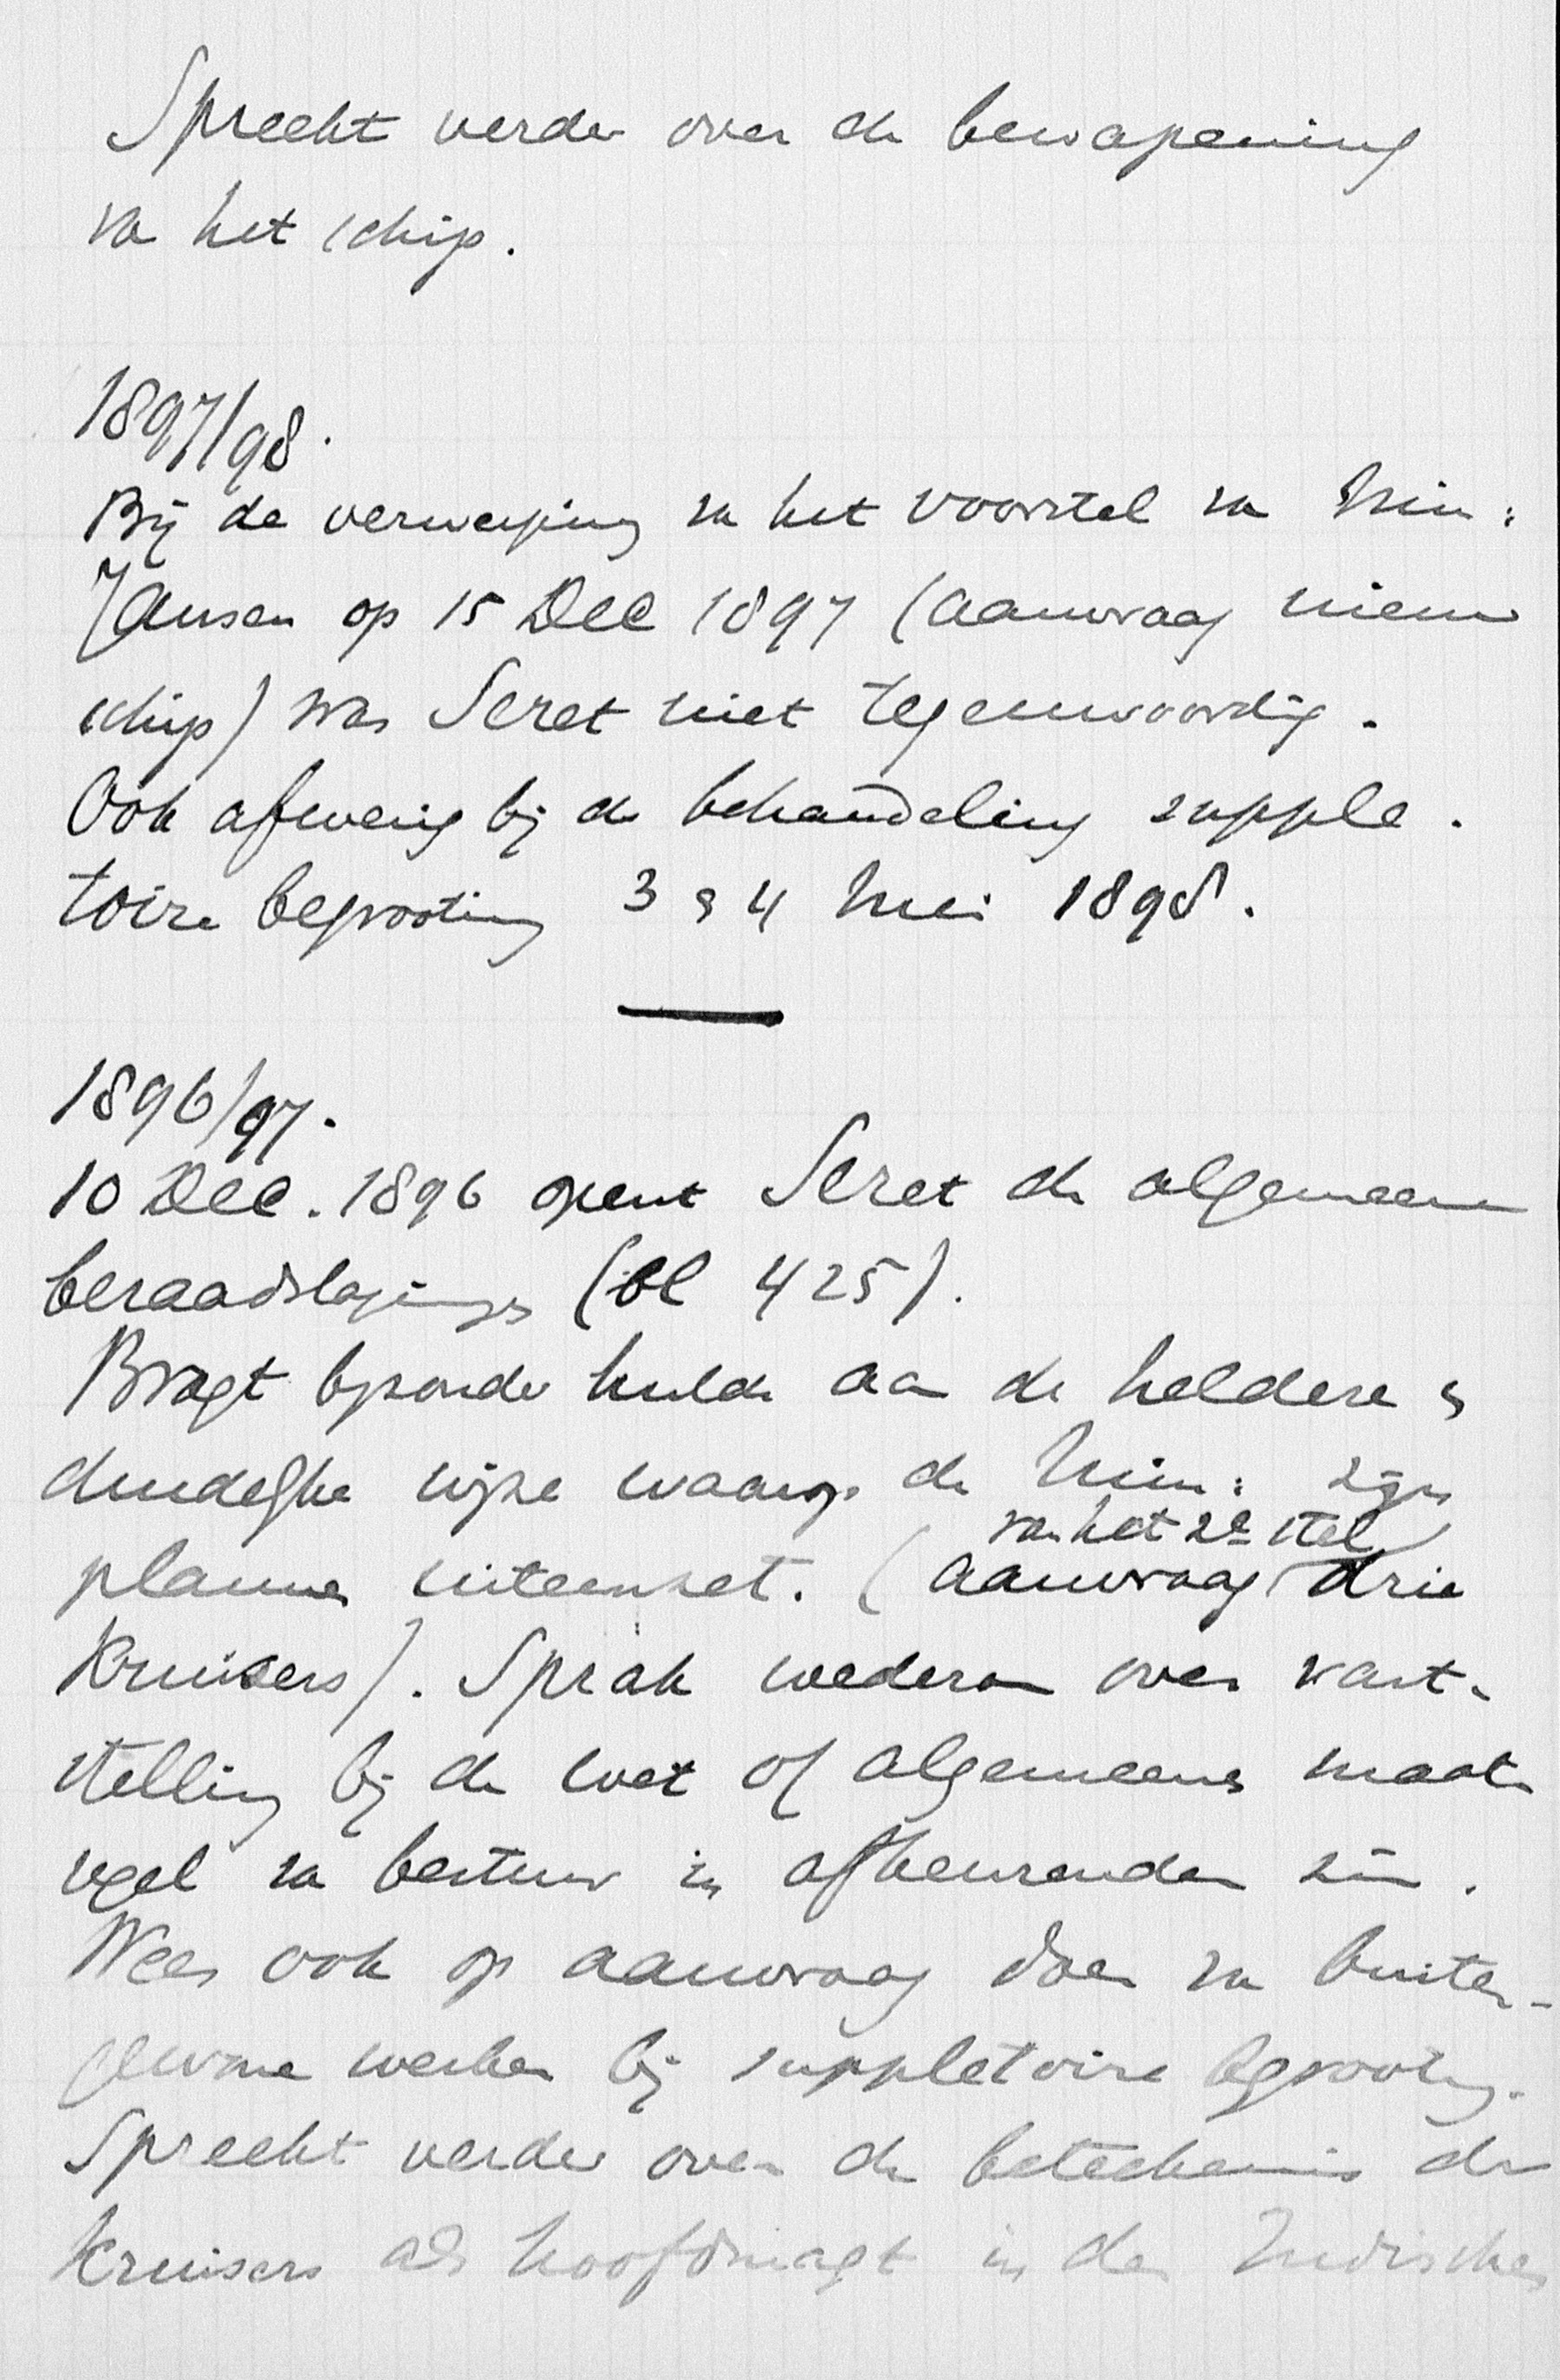 Spreekt verder over de bewapening
va het schip.
1897/98.
Bij de verwerping va het voorstel va Min:
Jansen op 15 Dec 1897 (aanvraag nieuw
schip) was Seret niet tegenwoordig.
Ook afwezig bij de behandeling supple-
toire begrooting 3 & 4 Mei 1898.
1896/97.
10 Dec. 1896 opent Seret de algemeene
beraadslagingen (bl 425).
Bragt byzonder hulde aan de heldere &
duidelyke wijze waarop de Min: zijn
van het 2e stel
plannen uiteenzet. (aanvraag drie
Kruisers). Sprak wederom over vast-
stelling bij de wet of algemeene maat-
regel va bestuur in afkeurenden zin.
Wees ook op aanvraag doen va buiten-
gewone werken bij suppletoire begrooting.
Spreekt verder over de beteekenis der
Kruisers als hoofdmagt in den Indischen